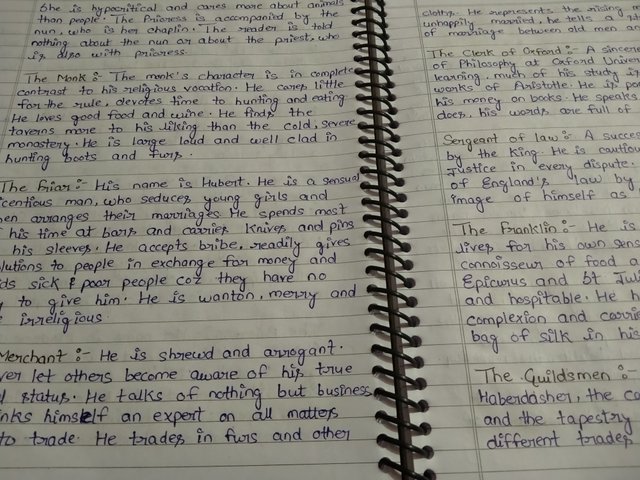 She is hypocritical and cares more about animals
than people. The Prioress is accompanied by the
nun, who is her chaplin. The reader is told
nothing about the nun or about the priest, who
is also with prioress.
The Monk :- The monk's character is in complete
contrast to his religious vocation. He cares little
for the rule, devotes time to hunting and eating.
He loves good food and wine. He finds the
taverns more to his liking than the cold, severe
monastery. He is large loud and well clad in
hunting boots and furs.
The Friar :- His name is Hubert. He is a sensual
licentious man, who seduces young girls and
then arranges their marriages. He spends most
his time at bars and carries knives and pins
his sleeves. He accepts bribe, readily gives
solutions to people in exchange for money and
sick & poor people coz they have no
to give him. He is wanton, merry and
irreligious.
Merchant :- He is shrewd and arrogant.
let others become aware of his true
status. He talks of nothing but business
himself an expert on all matters
to trade. He trades in furs and other
cloths. He represents the rising
unhappily married, he tells a
of marriage between old men and
The Clerk of Oxford :- A sincere
of Philosophy at Oxford Univer
learning. much of his study i
works of Aristotle. He is po
his money on books. He speaks
does, his words are full of
Sergeant of law :- A succes
by the King. He is cautious
Justice in every dispute.
of England's law by
image of himself as
The Franklin :- He is
lives for his own sens
connoisseur of food a
Epicurus and St Jul
and hospitable. He h
complexion and carries
bag of silk in his
The Guildsmen :-
Haberdasher, the ca
and the tapestry
different trades